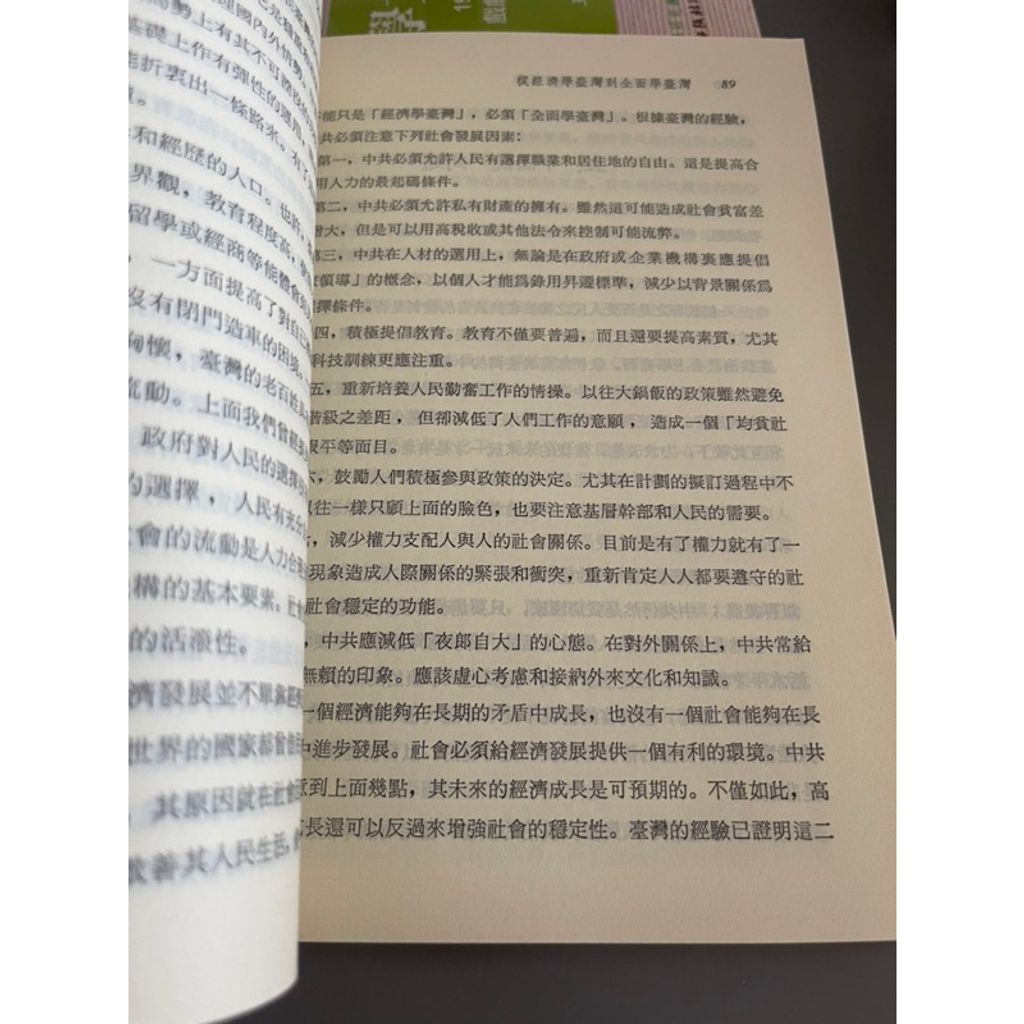 學
19
戲劇
為勢上有其不可
基礎上作有彈性的運用
能折裏出一條路來。有了
和經歷的人口。也許
界觀，教育程度高，
留學或經商等能體會到
，一方面提高了對自己
沒有閉門造車的困境
胸懷，臺灣的老百姓
流動。上面我們曾經
政府對人民的選擇
的選擇，人民有充分
會的流動是人力合理
構的基本要素。社會
的活潑性。
濟發展並不單靠經
世界的國家都曾
其原因就在社會
改善其人民生活，
從經濟學臺灣到全面學臺灣 89
能只是「經濟學臺灣」，必須「全面學臺灣」。根據臺灣的經驗，
共必須注意下列社會發展因素：
第一，中共必須允許人民有選擇職業和居住地的自由。這是提高合
用人力的最起碼條件。
第二，中共必須允許私有財產的擁有。雖然這可能造成社會貧富差
增大，但是可以用高稅收或其他法令來控制可能流弊。
第三，中共在人材的選用上，無論是在政府或企業機構裏應提倡
領導」的概念，以個人才能爲錄用昇遷標準，減少以背景關係爲
擇條件。
四，積極提倡教育。教育不僅要普遍，而且還要提高素質，尤其
科技訓練更應注重。
五，重新培養人民勤奮工作的情操。以往大鍋飯的政策雖然避免
階級之差距，但卻減低了人們工作的意願，造成一個「均貧社
平等面目。
六，鼓勵人們積極參與政策的決定。尤其在計劃的擬訂過程中不
以往一樣只顧上面的臉色，也要注意基層幹部和人民的需要。
，減少權力支配人與人的社會關係。目前是有了權力就有了一
現象造成人際關係的緊張和衝突，重新肯定人人都要遵守的社
社會穩定的功能。
，中共應減低「夜郎自大」的心態。在對外關係上，中共常給
無賴的印象。應該虛心考慮和接納外來文化和知識。
一個經濟能夠在長期的矛盾中成長，也沒有一個社會能夠在長
中進步發展。社會必須給經濟發展提供一個有利的環境。中共
意到上面幾點，其未來的經濟成長是可預期的。不僅如此，高
成長還可以反過來增強社會的穩定性。臺灣的經驗已證明這二